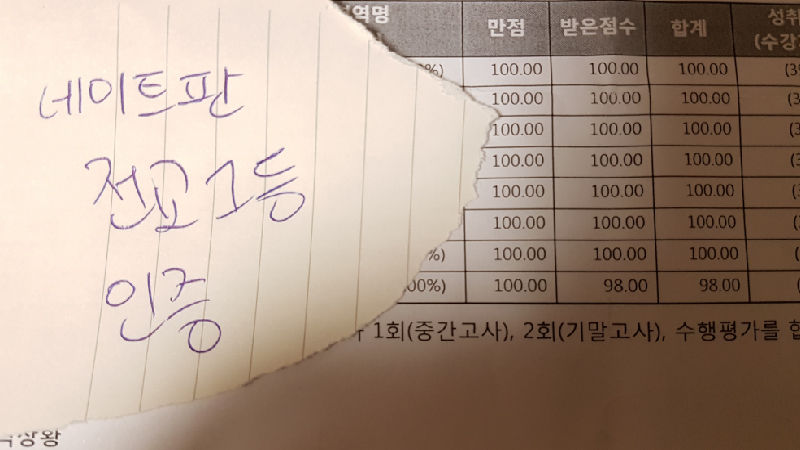 네이트판
전교 1등
인증
역명 만점 받은점수 합계 성취
(수강
%) 100.00 100.00 100.00 (3
100.00 100.00 100.00 (3
100.00 100.00 100.00 (3
100.00 100.00 100.00 (3
100.00 100.00 100.00 (3
100.00 100.00 100.00
%) 100.00 100.00 100.00
00%) 100.00 98.00 98.00
1회(중간고사), 2회(기말고사), 수행평가를 합
상황